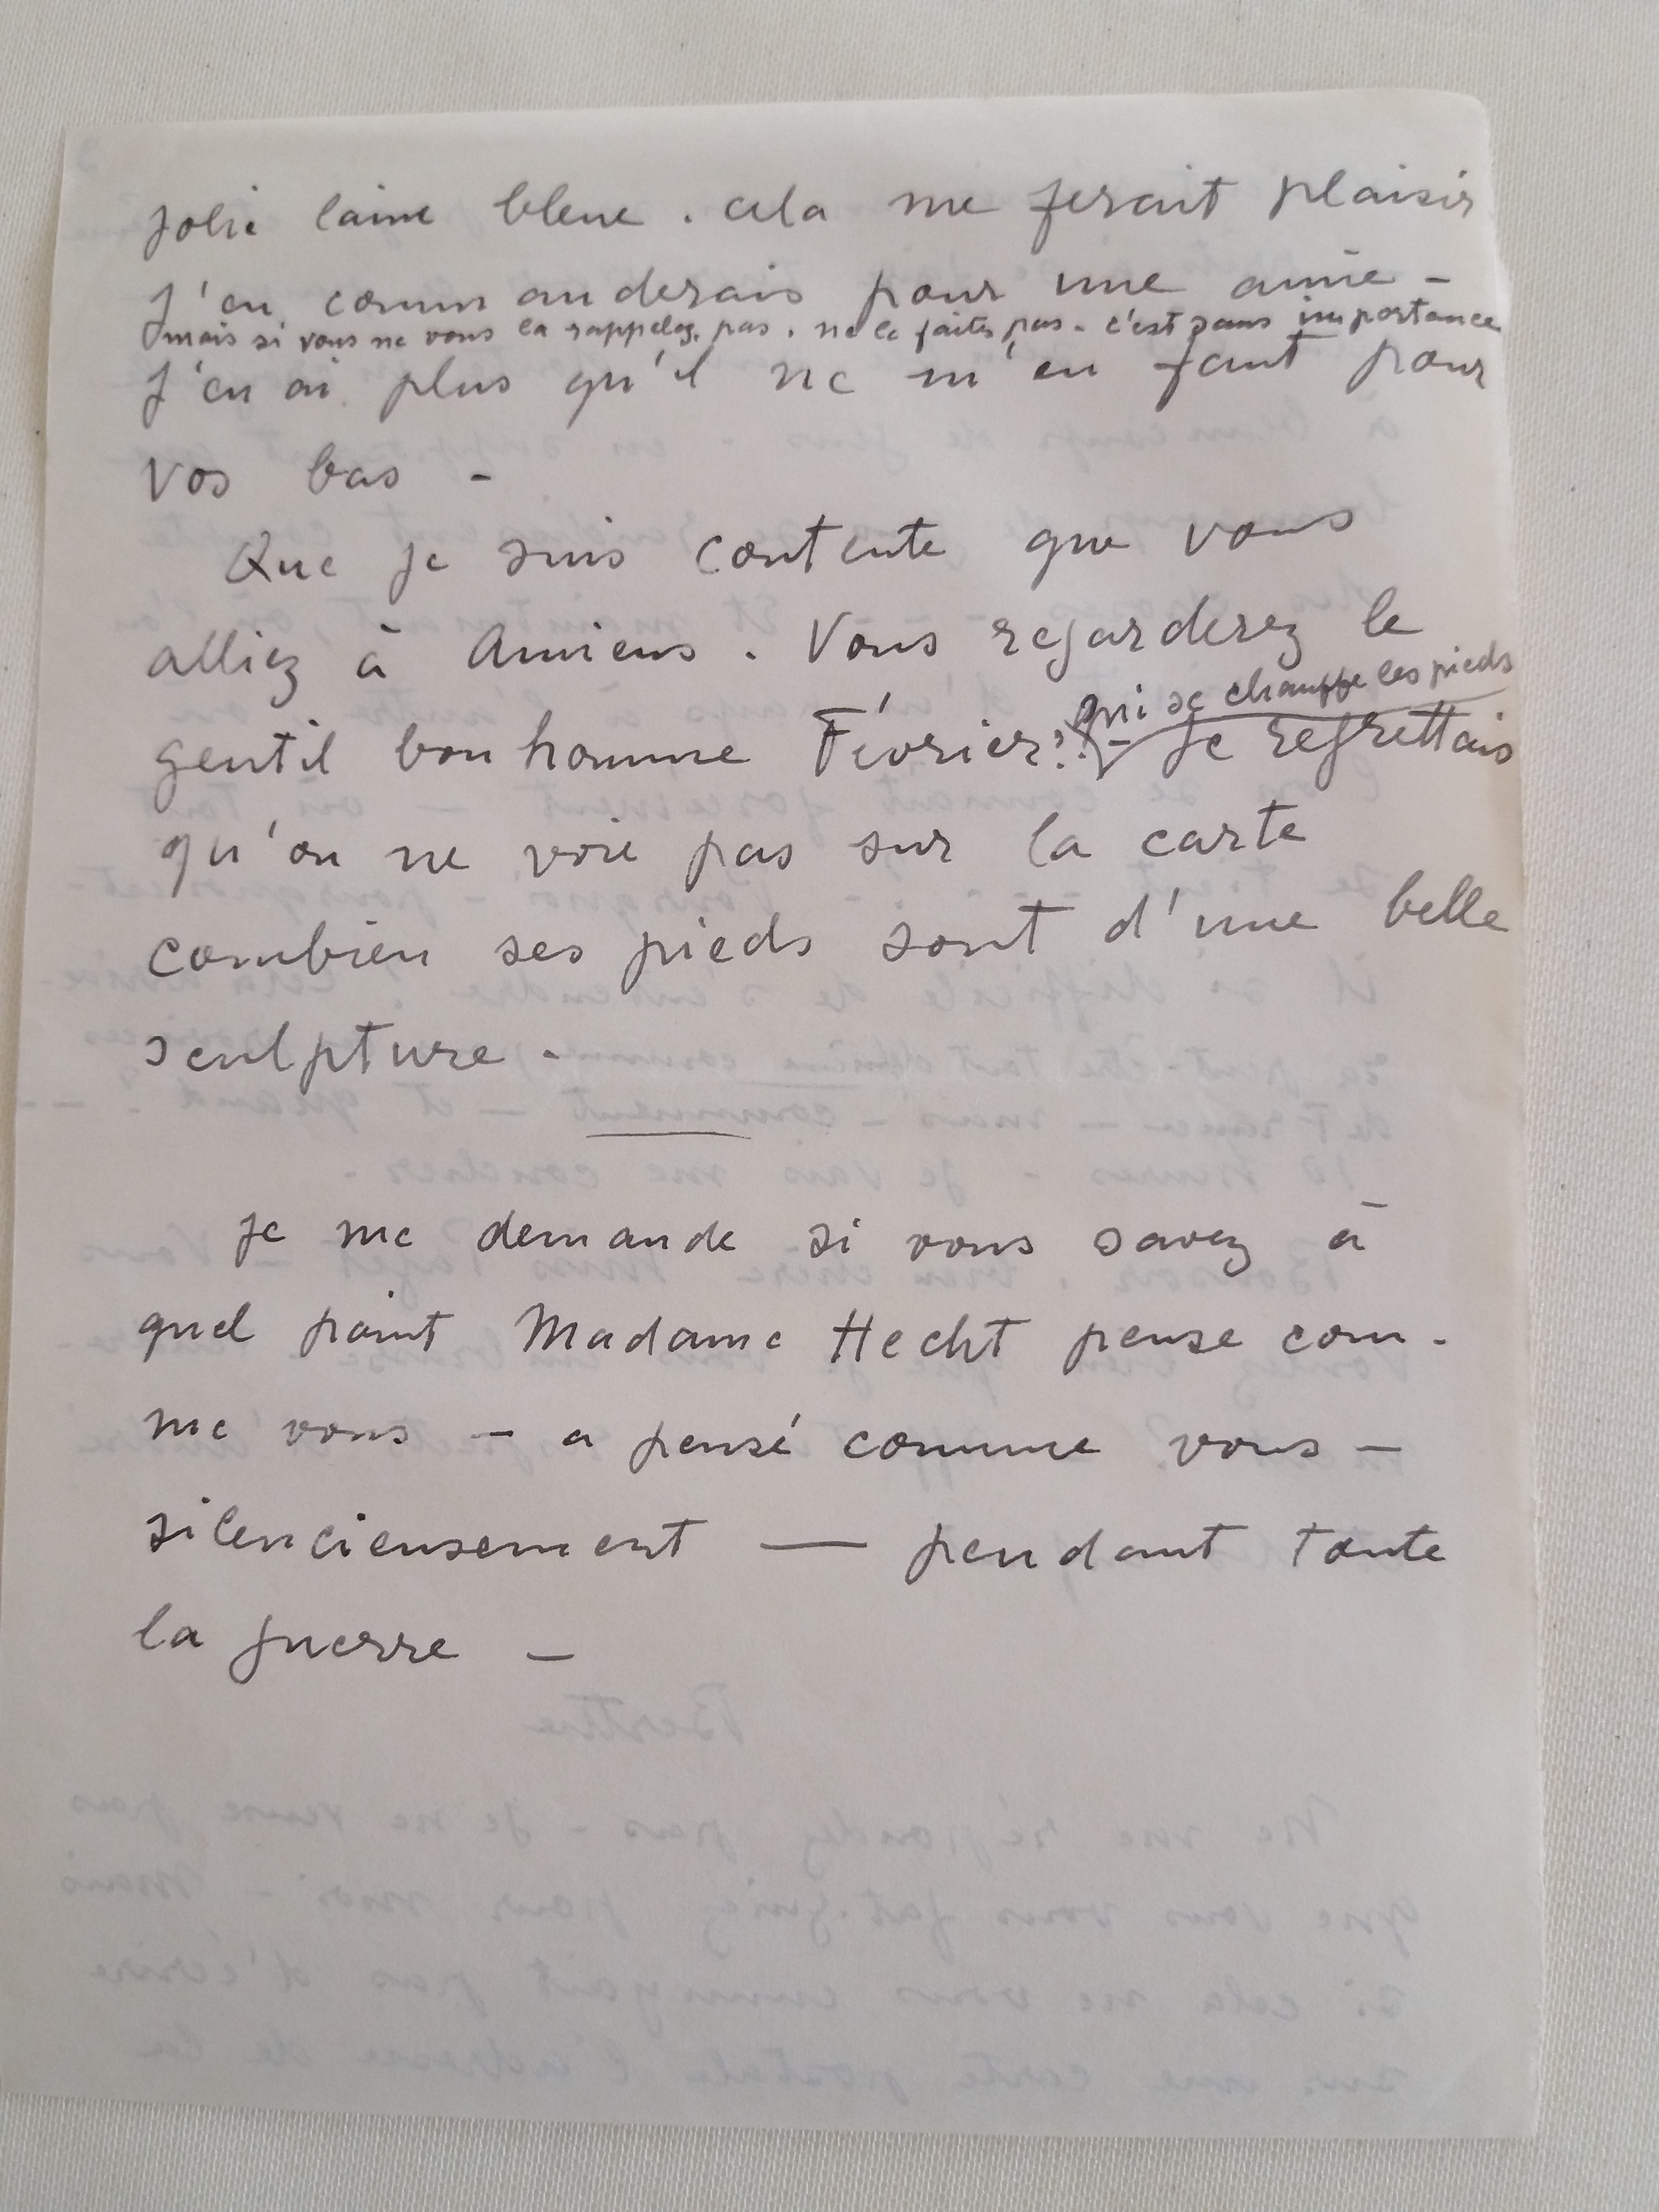 jolie laine bleue. cela me ferait plaisir
J'en commanderais pour une amie -
mais si vous ne vous la rappelez pas. ne le faites pas. c'est sans importance
J'en ai plus qu'il ne m'en faut pour
vos bas -
Que je suis contente que vous
alliez à Amiens. Vous regarderez le
qui se chauffe les pieds
gentil bonhomme Février?! - je regrettais
qu'on ne voie pas sur la carte
combien ses pieds sont d'une belle
sculpture -
je me demande si vous savez à
quel point Madame Hecht pense com-
me vous - a pensé comme vous -
silencieusement — pendant toute
la guerre -